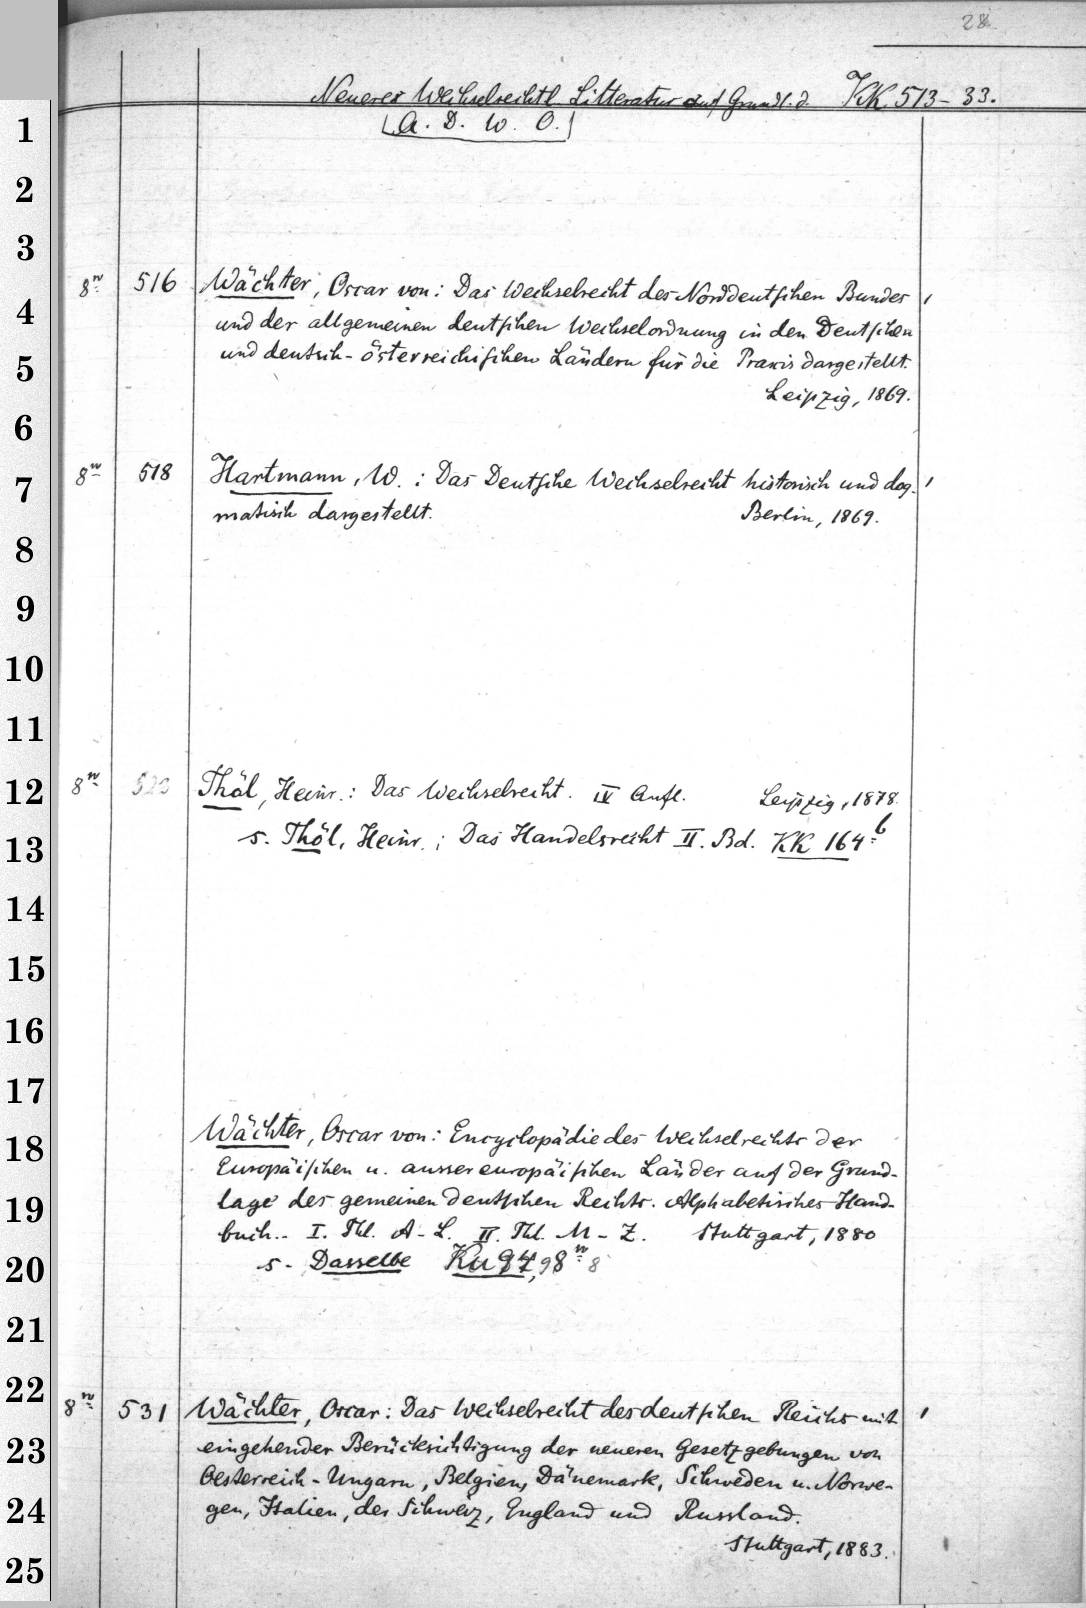 28
Neueres Wechselrechtl. Litteratur auf Grundl. d. KK. 513-33.
(A. D. W. O.)
1
2
3
8º 516 Wächter, Oscar von: Das Wechselrecht des Norddeutschen Bundes
4
und der allgemeinen deutschen Wechselordnung in den Deutschen
5
und deutsch-österreichischen Ländern für die Praxis dargestellt.
Leipzig, 1869.
6
8º 518 Hartmann, W.: Das Deutsche Wechselrecht historisch und dog-
7
matisch dargestellt. Berlin, 1869.
8
9
10
11
12
8º 520 Thöl, Heinr.: Das Wechselrecht. IV Aufl. Leipzig, 1878.
13
s. Thöl, Heinr.: Das Handelsrecht II. Bd. KK 164.b
14
15
16
17
Wächter, Oscar von: Encyclopädie des Wechselrechts der
18
Europäischen u. aussereuropäischen Länder auf der Grund-
19
lage des gemeinen deutschen Rechts. Alphabetisches Hand-
buch.- I. Thl. A-L. II. Thl. M-Z. Stuttgart, 1880
20
s. Dasselbe Ku 97, 98 8º
21
22
8º 531 Wächter, Oscar: Das Wechselrecht des deutschen Reichs mit
23
eingehender Berücksichtigung der neueren Gesetzgebungen von
Oesterreich-Ungarn, Belgien, Dänemark, Schweden u. Norwe-
24
gen, Italien, der Schweiz, England und Russland.
Stuttgart, 1883.
25